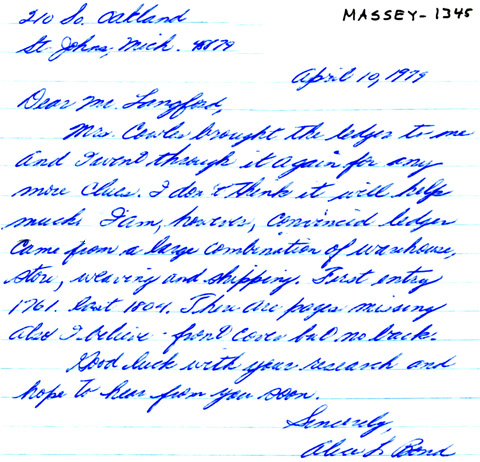 210 So. Oakland
MASSEY-1345
St. Johns, Mich. 48879
April 10, 1979
Dear Mr. Langford,
Mrs. Cowles brought the ledger to me
and I went through it again for any
more clues. I don't think it will help
much. I am, however, convinced ledger
came from a large combination of warehouse,
store, weaving and shipping. First entry
1761. Last 1804. There are pages missing
also I believe - front cover but no back.
Good luck with your research and
hope to hear from you soon.
Sincerely,
Alice L. Bond